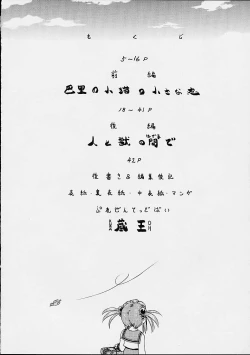 もくじ
5-16P
前編
巴里の小猫の小さな恋
18-41P
後編
人と獣の間で
42P
後書き&編集後記
表紙・裏表紙・中表紙・マンガ
ぷれぜんてっどばい
蔵王